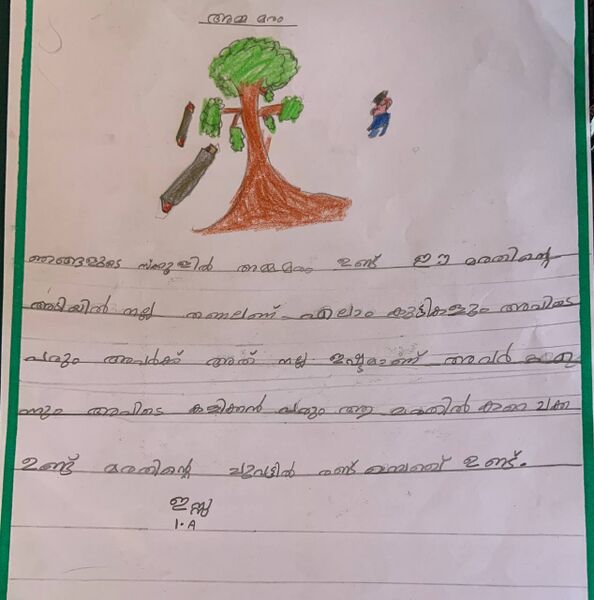 അമ്മ മരം
ഞങ്ങളുടെ സ്കൂളിൽ അമ്മ മരം ഉണ്ട് ഈ മരതിന്റെ
അടിയിൽ നല്ല തണലണ് എലാം കുട്ടികളും അവിടെ
വരും അവർക്ക് അത് നല്ല ഇഷ്ടമാണ് അവർ
അവിടെ കളിക്കൻ വരും ആ മരതിൽ കുറെ ചക്ക
ഉണ്ട് മരതിന്റെ ചുവട്ടിൽ രണ്ട് ബെഞ്ച് ഉണ്ട്.
ഇസ്സ
1.A